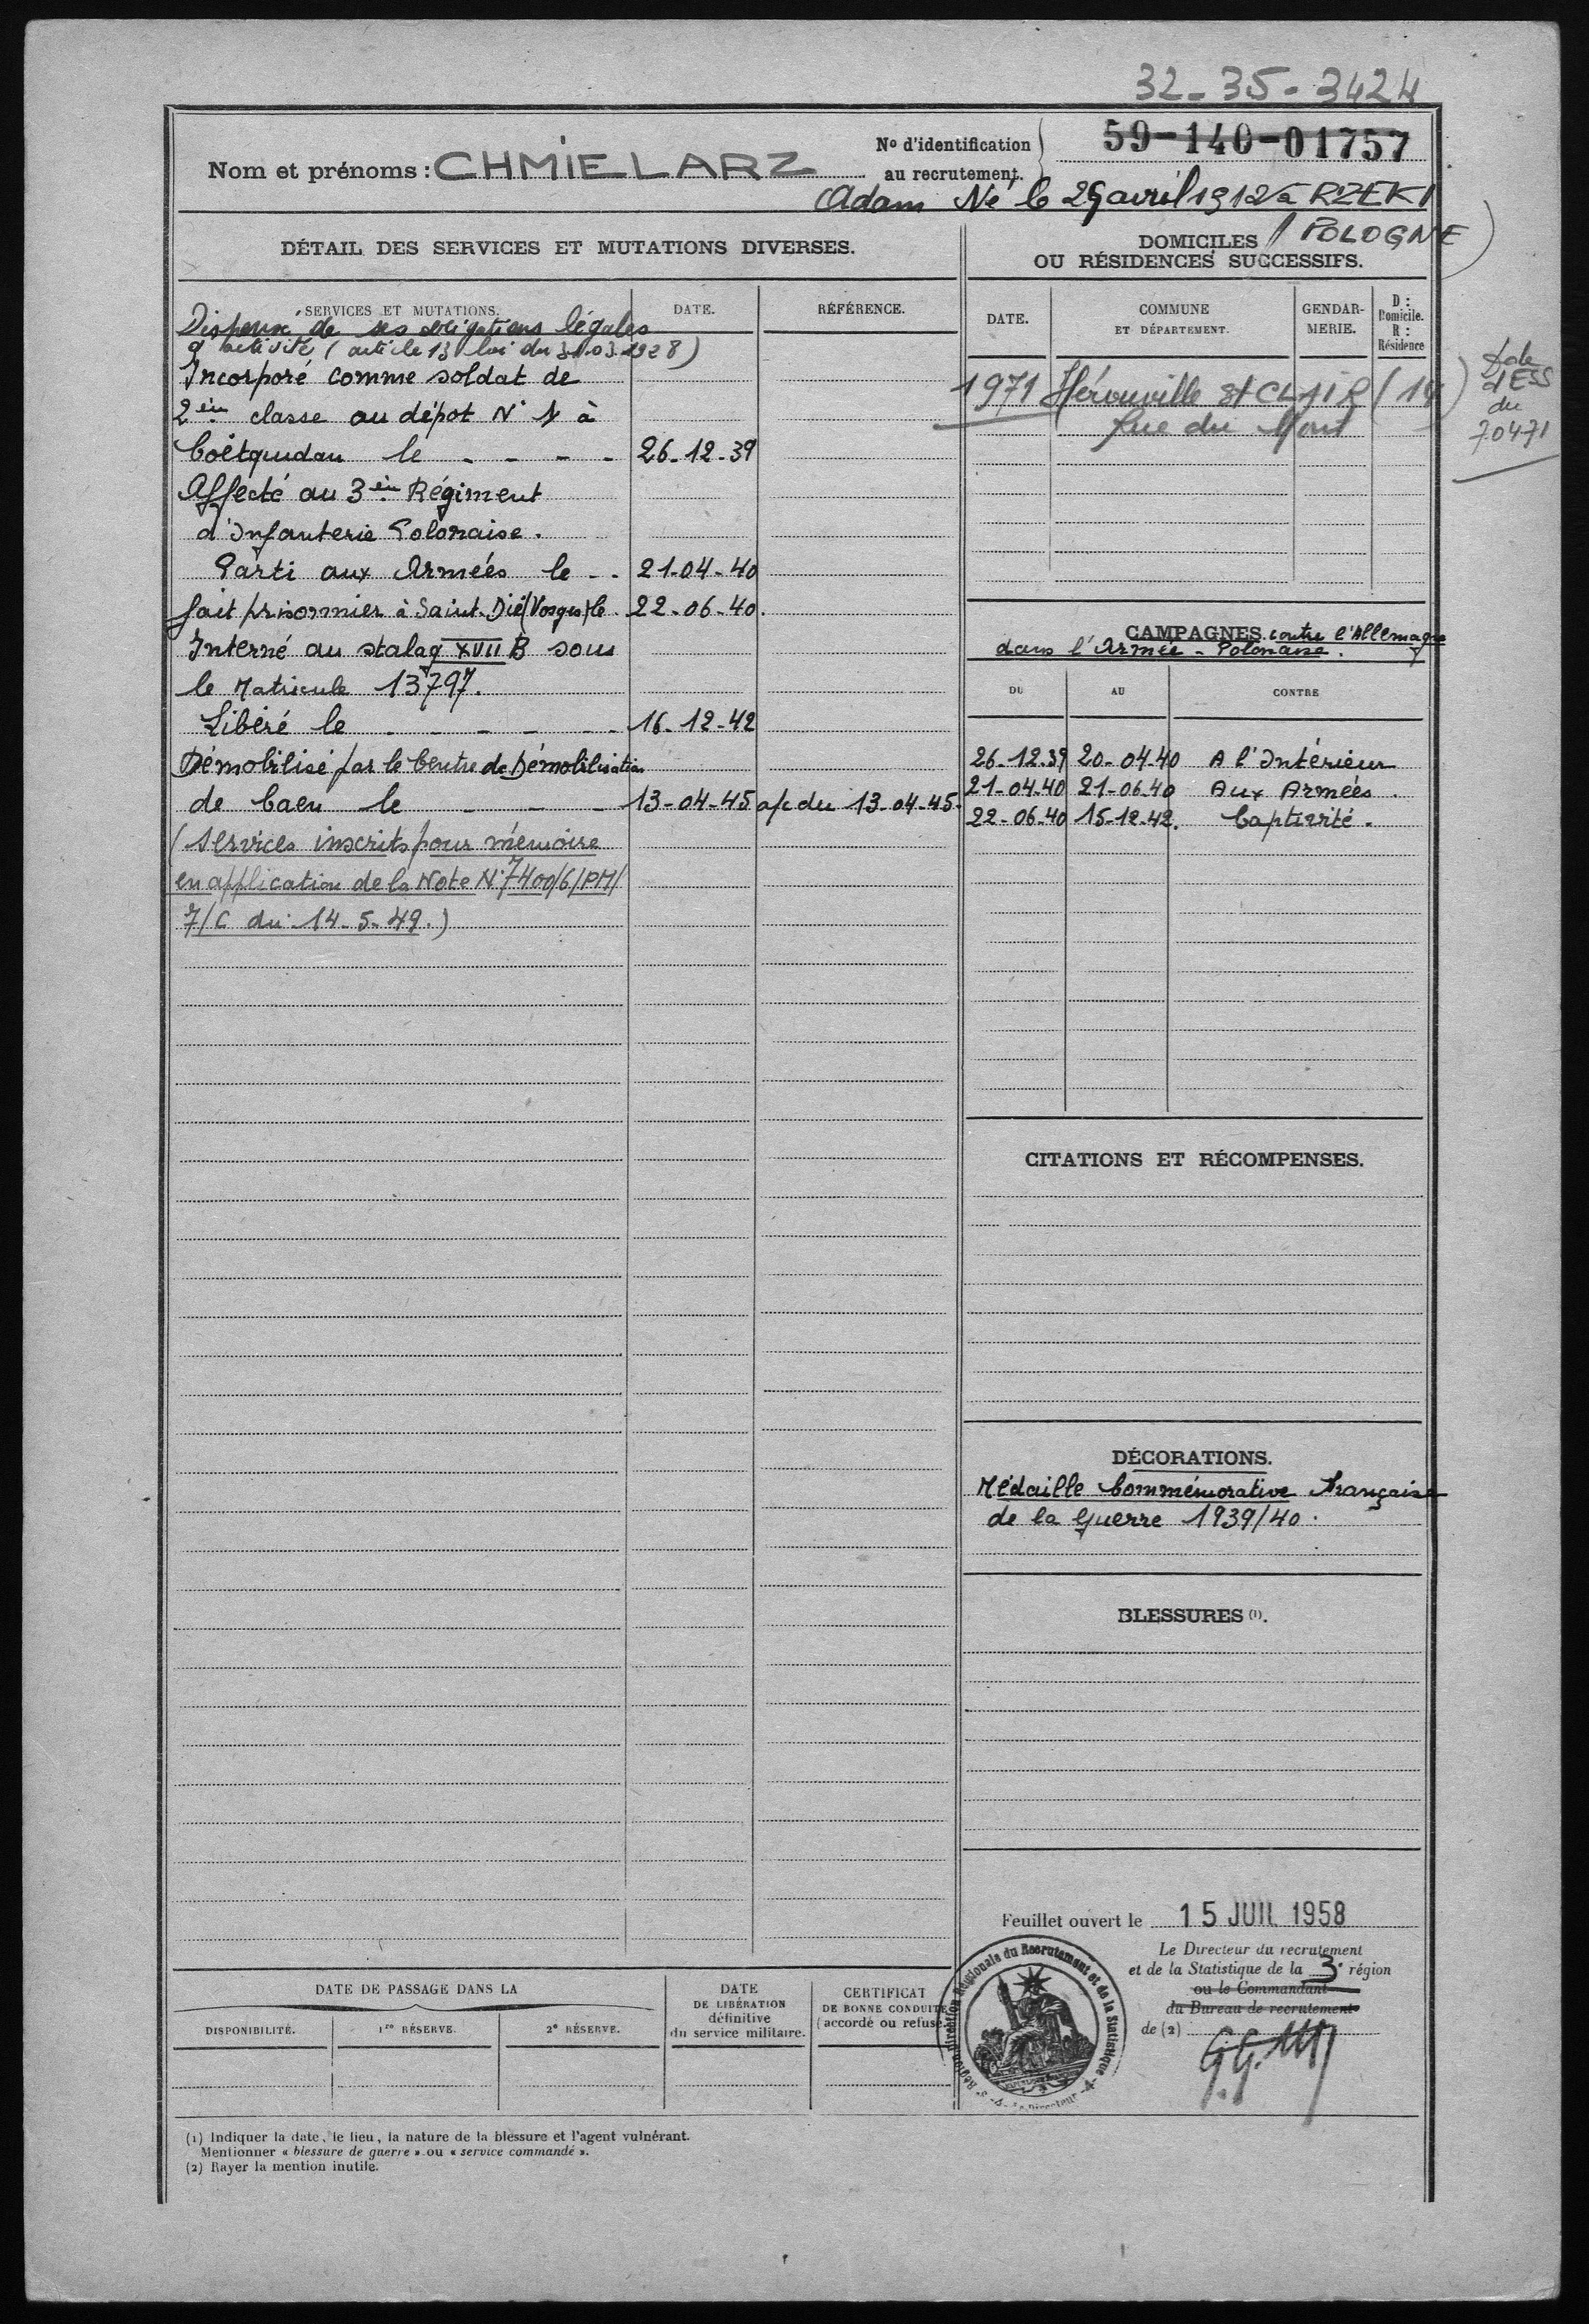 32-35-3424
Nom et prénoms : CHMIELARZ
No d'identification au recrutement. 59-140-01757
Adam Né le 29 avril 1912 à RZEKI
(POLOGNE)
DÉTAIL DES SERVICES ET MUTATIONS DIVERSES.
SERVICES ET MUTATIONS. DATE. RÉFÉRENCE.
Dispensé de ses obligations légales
d'activité (article 13 loi du 31.03.1928)
Incorporé comme soldat de
2èm classe au dépot N° 1 à
Coëtquidan le - - - - 26-12-39
Affecté au 3èm Régiment
d'Infanterie Polonaise.
Parti aux Armées le - - 21-04-40
fait prisonnier à Saint-Dié (Vosges) le 22-06-40.
Interné au stalag XVII B sous
le Matricule 13797.
Libéré le - - - - - - 16-12-42
Démobilisé par le Centre de Démobilisation
de Caen le - - - - 13-04-45 a/c du 13-04-45-
(Services inscrits pour mémoire
en application de la Note N° 7400/6/PM/
7/C du 14-5-49.)
DOMICILES
OU RÉSIDENCES SUCCESSIFS.
DATE. COMMUNE ET DÉPARTEMENT. GENDARMERIE. D : Domicile. R : Résidence
1971 Hérouville St CLAIR (14)
Rue du Mont
d'ESS
du
70471
CAMPAGNES contre l'Allemagne
dans l'Armée - Polonaise.
DU AU CONTRE
26-12-39 20-04-40 A l'Intérieur
21-04-40 21-06-40 Aux Armées.
22-06-40 15-12-42. Captivité.
CITATIONS ET RÉCOMPENSES.
DÉCORATIONS.
Médaille Commémorative Française
de la Guerre 1939/40.
BLESSURES (1).
Feuillet ouvert le 15 JUIL 1958
Le Directeur du recrutement
et de la Statistique de la 3e région
ou le Commandant
du Bureau de recrutement
de (2)
Direction Régionale du Recrutement et de la Statistique
Le Directeur
DATE DE PASSAGE DANS LA
DISPONIBILITÉ. 1re RÉSERVE. 2e RÉSERVE.
DATE
DE LIBÉRATION
définitive
du service militaire.
CERTIFICAT
DE BONNE CONDUITE
(accordé ou refusé
(1) Indiquer la date, le lieu, la nature de la blessure et l'agent vulnérant.
Mentionner « blessure de guerre » ou « service commandé ».
(2) Rayer la mention inutile.